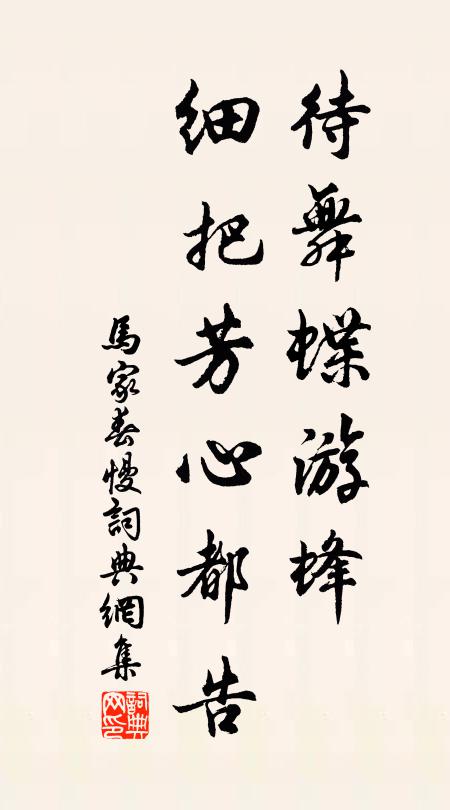 待舞蝶游蜂
细把芳心都告
馬家春慢詞典網集
詞典网印